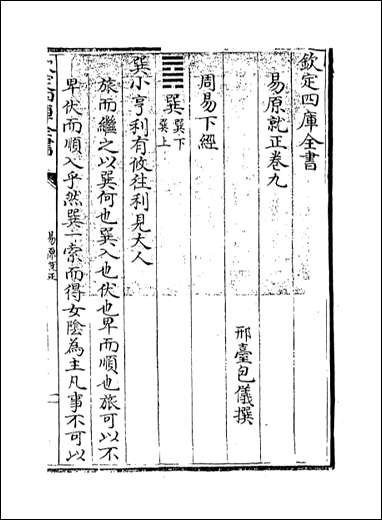 欽定四庫全書
易原就正卷九
邢臺包儀撰
周易下經
䷸巽 巽下巽上
巽小亨利有攸往利見大人
旅而繼之以巽何也巽入也伏也卑而順也旅可以不
卑伏而順入乎然巽一索而得女陰為主凡事不可以
欽定四庫全書
易原就正